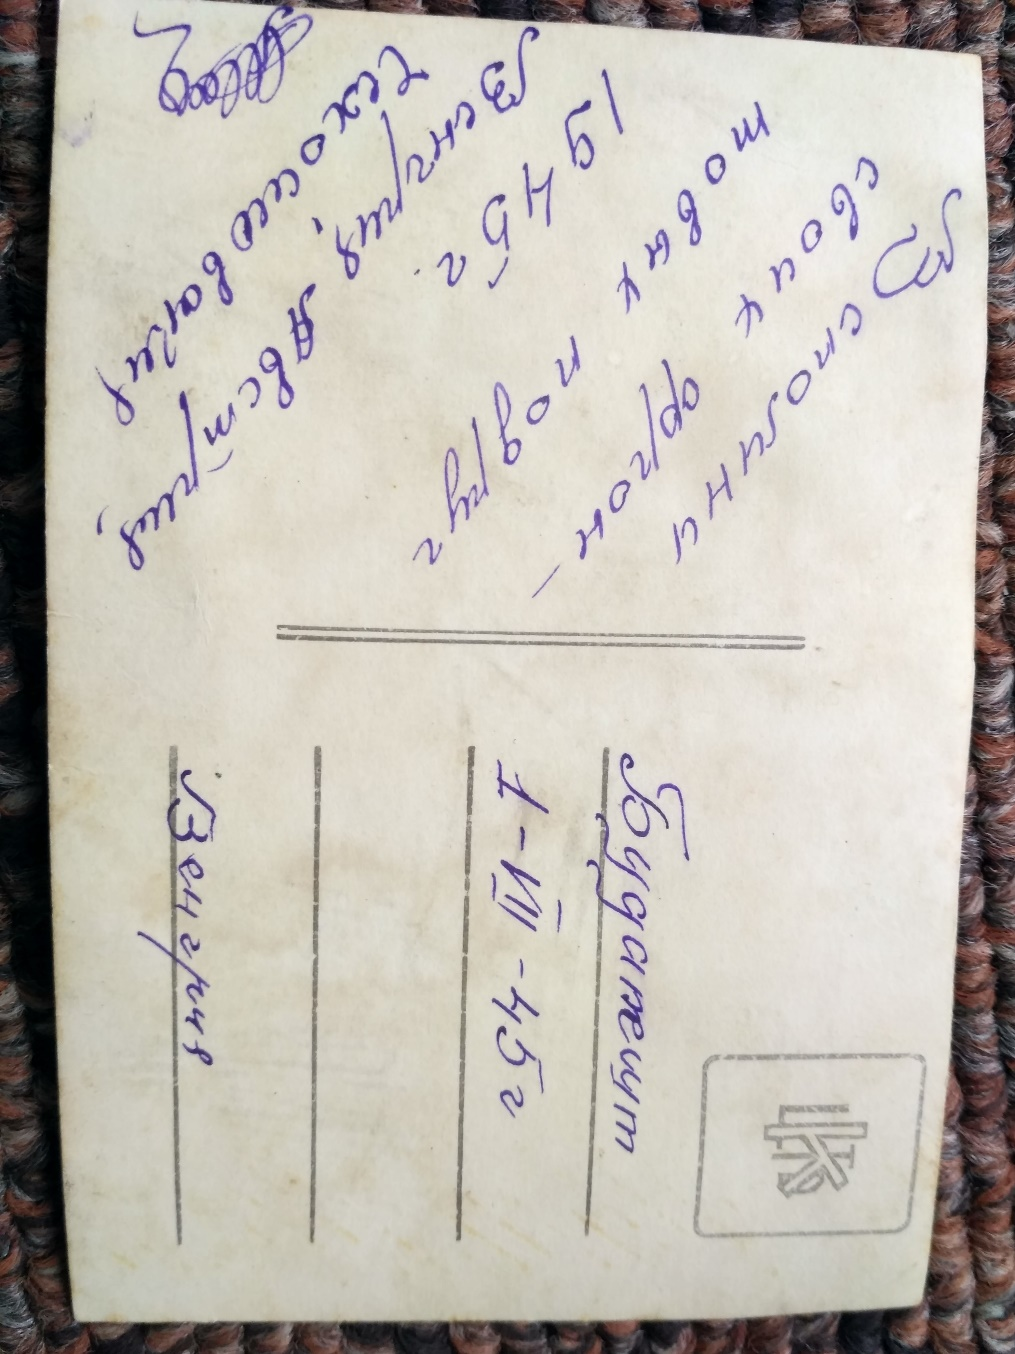 Вспомни
своих фрон-
товых подруг
1945 г.
Венгрия, Австрия,
Чехословакия
Будапешт
1-VII-45г
Венгрия